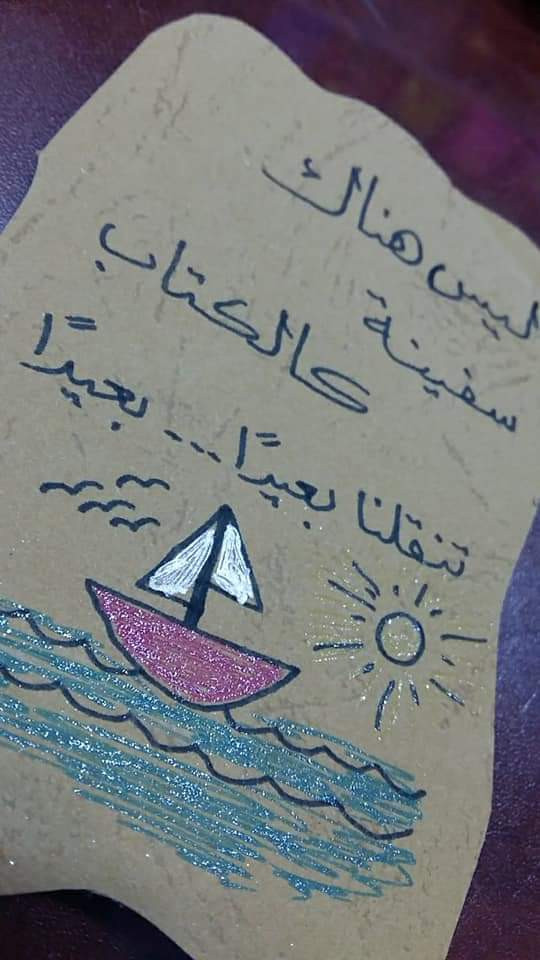 ليس هناك
سفينة
كالكتاب
تنقلنا بعيدًا... بعيدًا